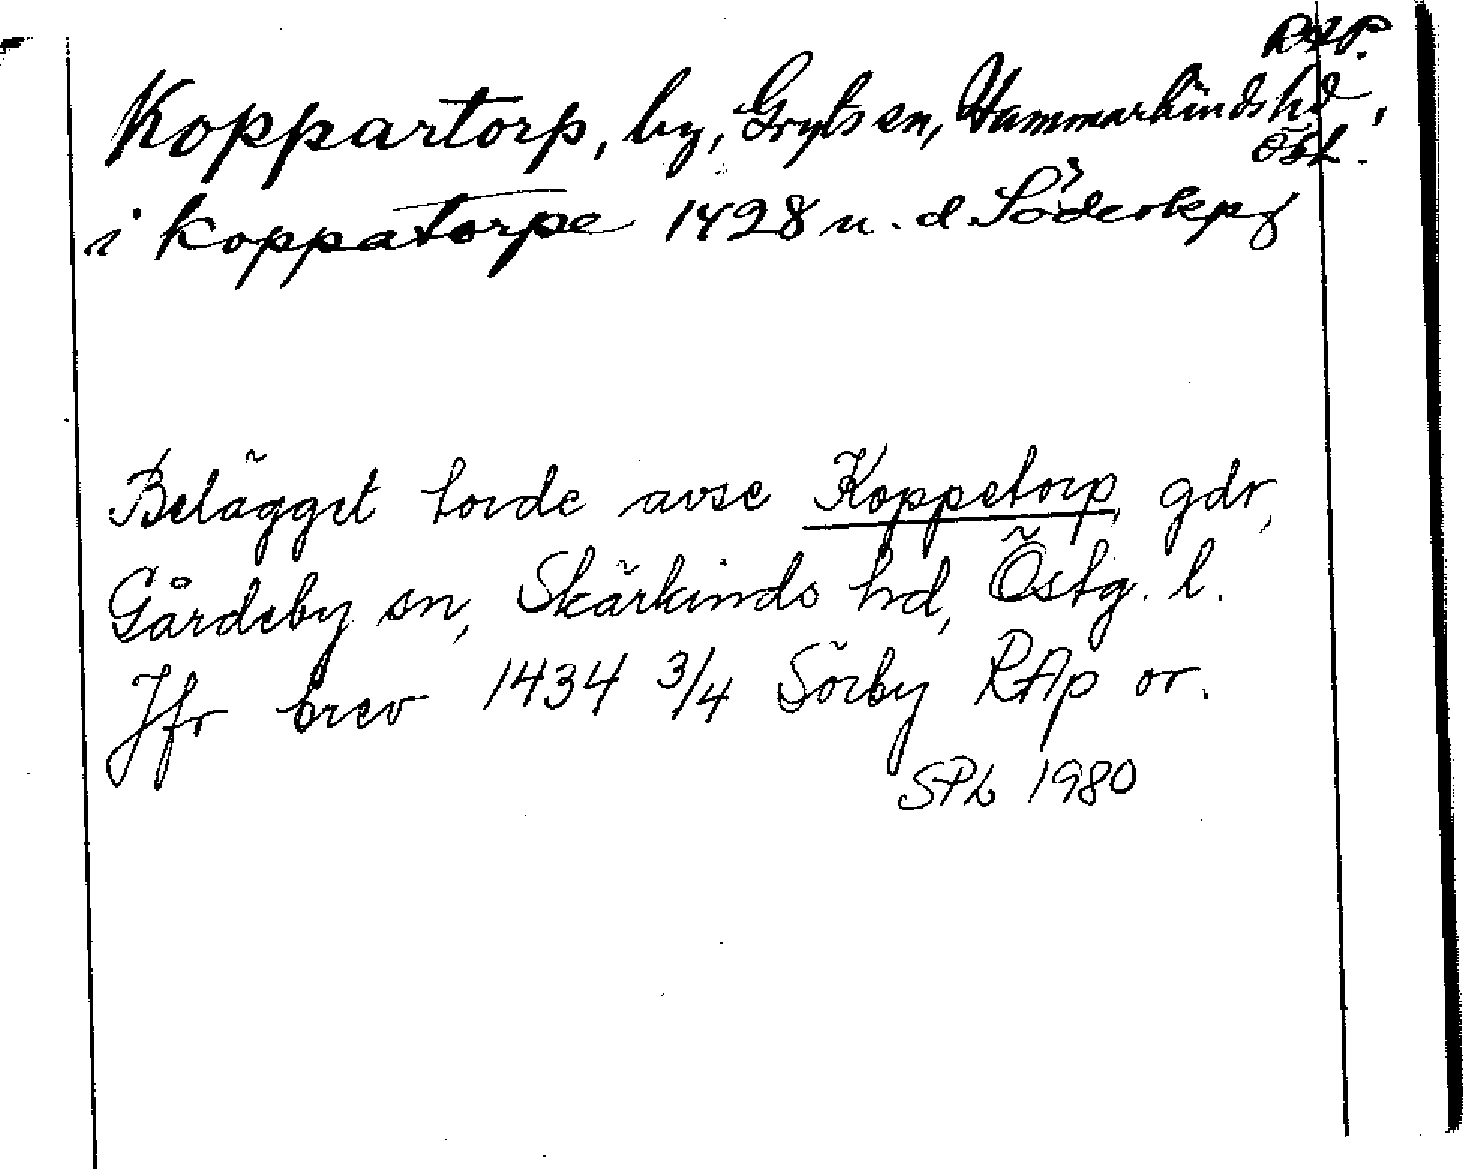 RAP.
Koppartorp, by, Gryts sn, Hammarkinds hd,
Östl.
i koppatorpe 1428 u. d. Söderkpg
Belägget torde avse Koppetorp, gdr,
Gårdeby sn, Skärkinds hd, Östg. l.
Jfr brev 1434 3/4 Sörby RAp or.
SPL 1980